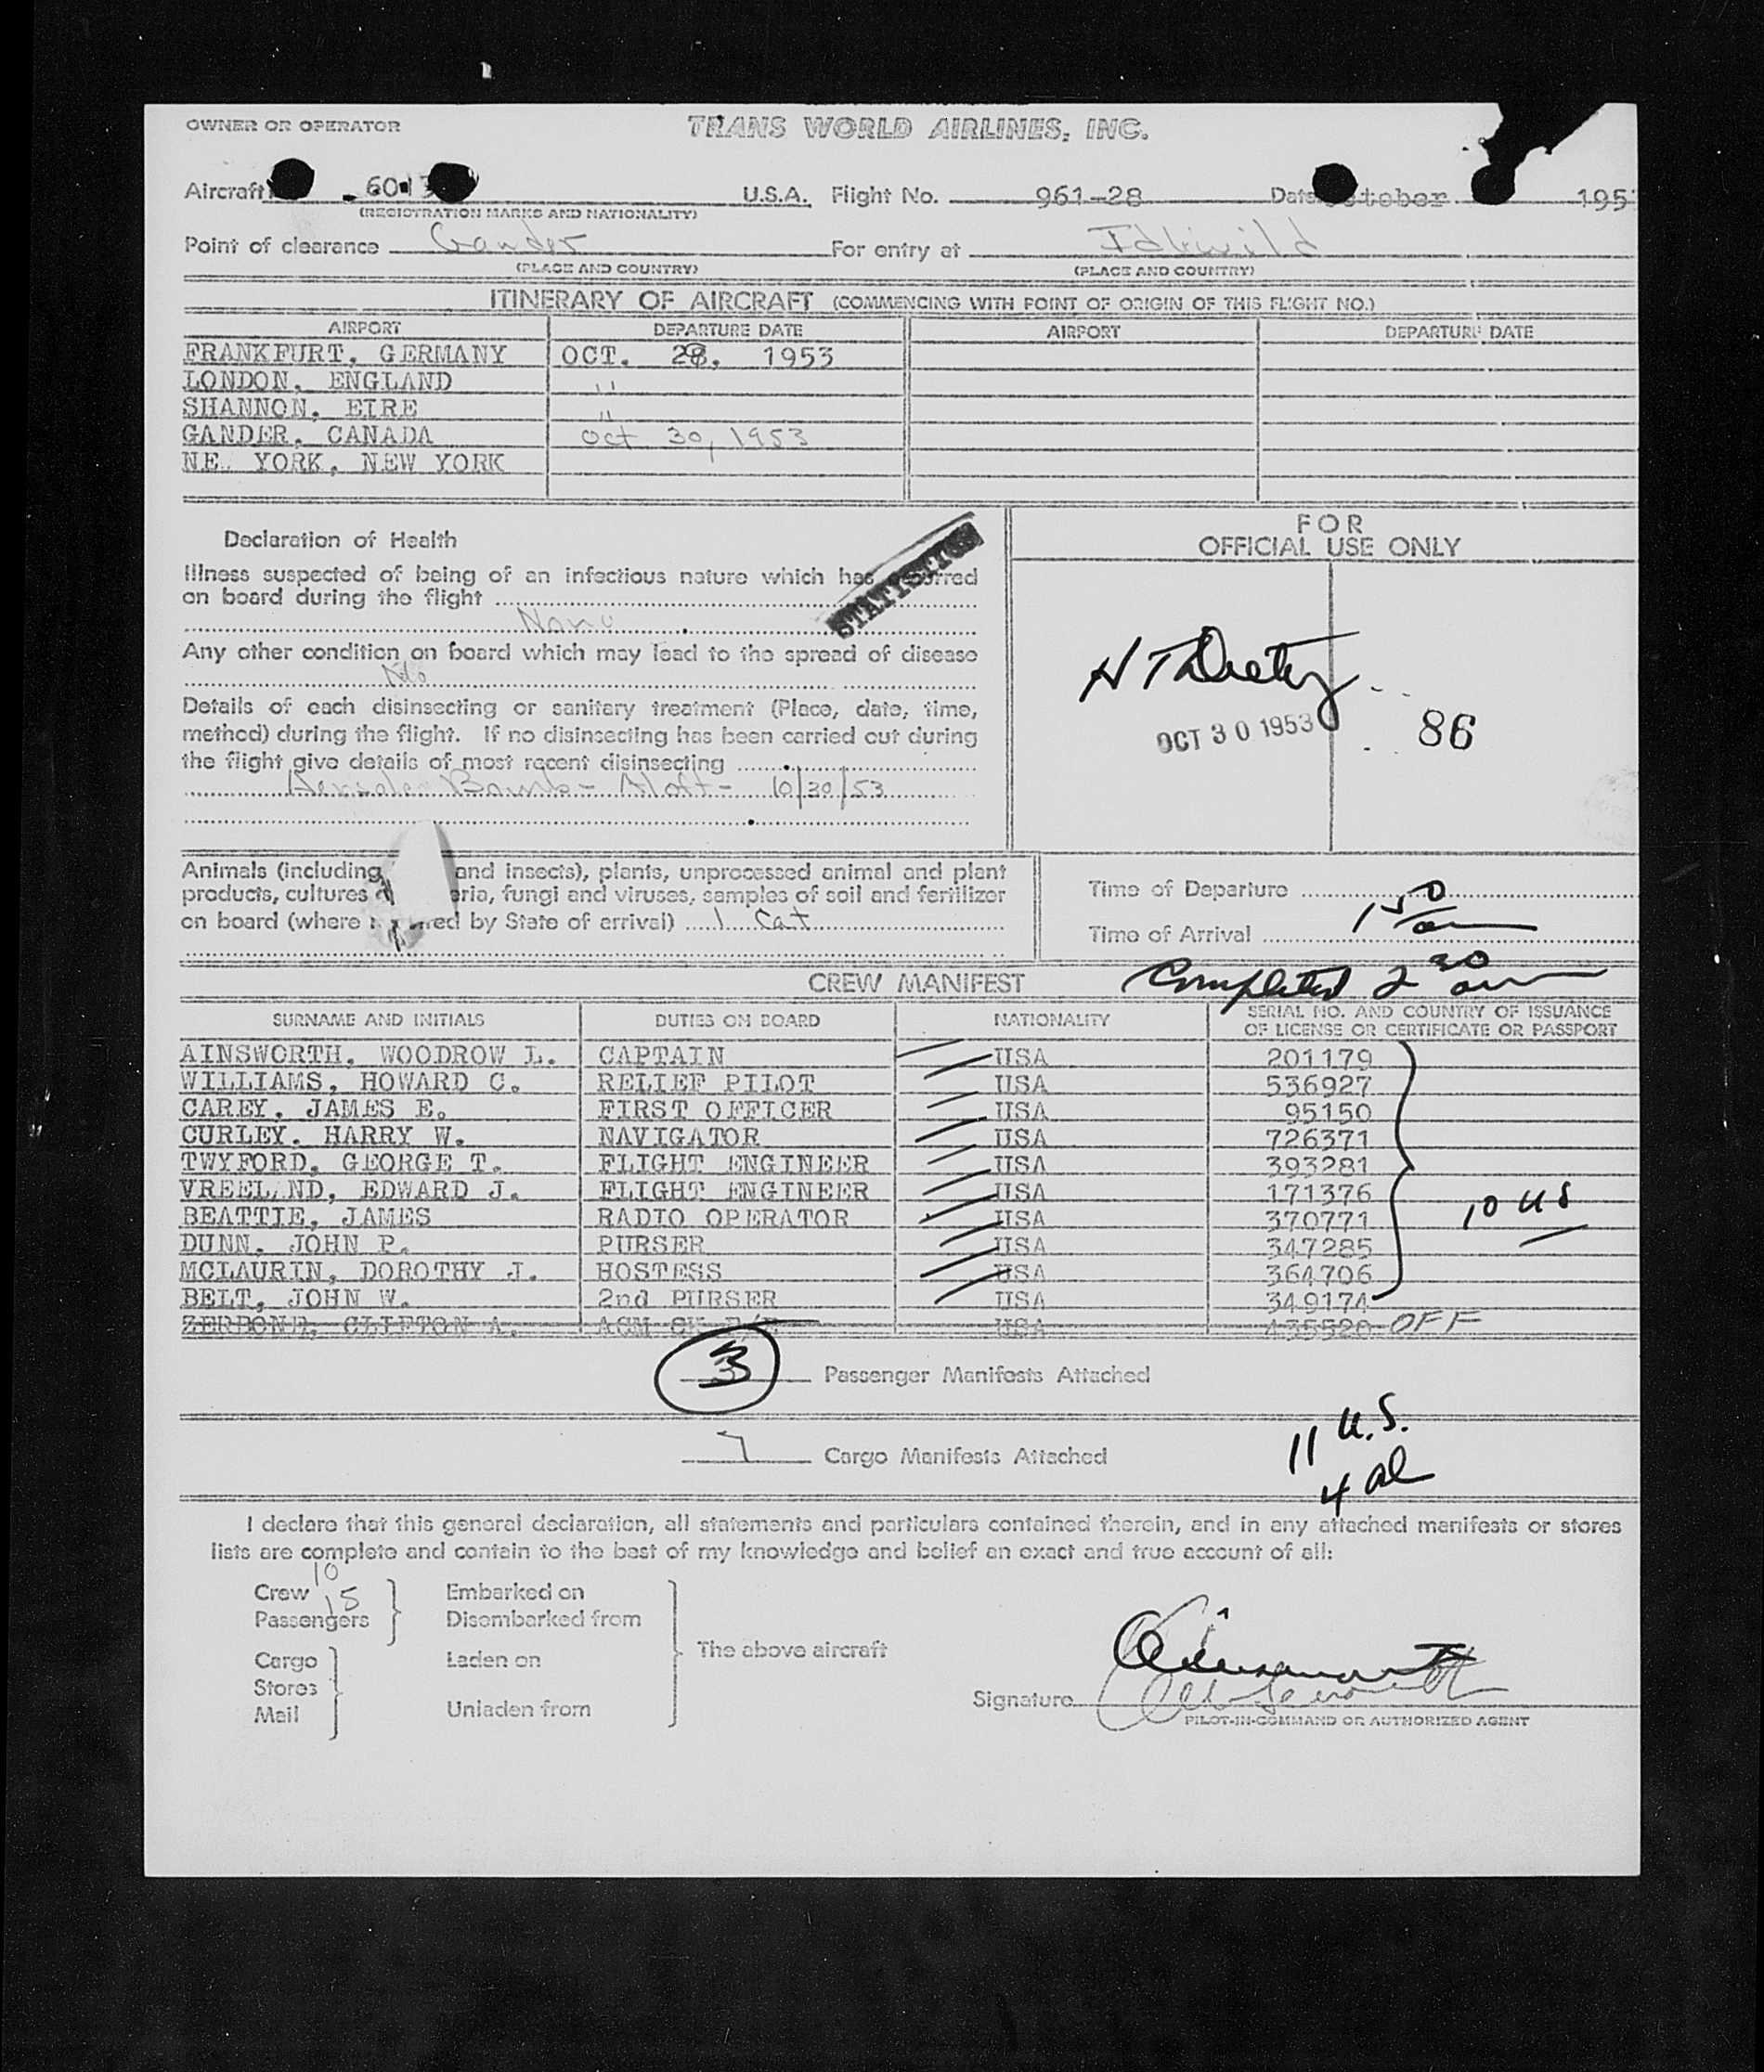 OWNER OR OPERATOR TRANS WORLD AIRLINES, INC.
Aircraft U.S.A. Flight No. 961-28 Date 195
(REGISTRATION MARKS AND NATIONALITY)
Point of clearance Gander For entry at Idlewild
(PLACE AND COUNTRY) (PLACE AND COUNTRY)
ITINERARY OF AIRCRAFT (COMMENCING WITH POINT OF ORIGIN OF THIS FLIGHT NO.)
AIRPORT DEPARTURE DATE AIRPORT DEPARTURE DATE
FRANKFURT, GERMANY OCT. 1953
LONDON, ENGLAND "
SHANNON, EIRE "
GANDER, CANADA Oct 30, 1953
NE YORK, NEW YORK
Declaration of Health
Illness suspected of being of an infectious nature which has
on board during the flight
None
STATISTICS
Any other condition on board which may lead to the spread of disease
No
Details of each disinsecting or sanitary treatment (Place, date, time,
method) during the flight. If no disinsecting has been carried out during
the flight give details of most recent disinsecting
Bomb - Aloft - 10/30/53
FOR
OFFICIAL USE ONLY
OCT 30 1953
86
Animals (including and insects), plants, unprocessed animal and plant
products, cultures eria, fungi and viruses, samples of soil and fertilizer
on board (where by State of arrival) 1 Cat
Time of Departure
Time of Arrival 1 50 am
Completed 2 30 am
CREW MANIFEST
SURNAME AND INITIALS DUTIES ON BOARD NATIONALITY SERIAL NO. AND COUNTRY OF ISSUANCE OF LICENSE OR CERTIFICATE OR PASSPORT
AINSWORTH, WOODROW L. CAPTAIN USA 201179
WILLIAMS, HOWARD C. RELIEF PILOT USA 536927
CAREY, JAMES E. FIRST OFFICER USA 95150
CURLEY, HARRY W. NAVIGATOR USA 726371
TWYFORD, GEORGE T. FLIGHT ENGINEER USA 393281
VREEL ND, EDWARD J. FLIGHT ENGINEER USA 171376
BEATTIE, JAMES RADIO OPERATOR USA 370771
DUNN, JOHN P. PURSER USA 347285
MCLAURIN, DOROTHY J. HOSTESS USA 364706
BELT, JOHN W. 2nd PURSER USA 349174
CLIFTON A. USA 435520 OFF
10 US
3 Passenger Manifests Attached
7 Cargo Manifests Attached
11 U.S.
4 al
I declare that this general declaration, all statements and particulars contained therein, and in any attached manifests or stores
lists are complete and contain to the best of my knowledge and belief an exact and true account of all:
Crew 10
Passengers 15
Embarked on
Disembarked from
Cargo
Stores
Mail
Laden on
Unladen from
The above aircraft
Signature
PILOT-IN-COMMAND OR AUTHORIZED AGENT